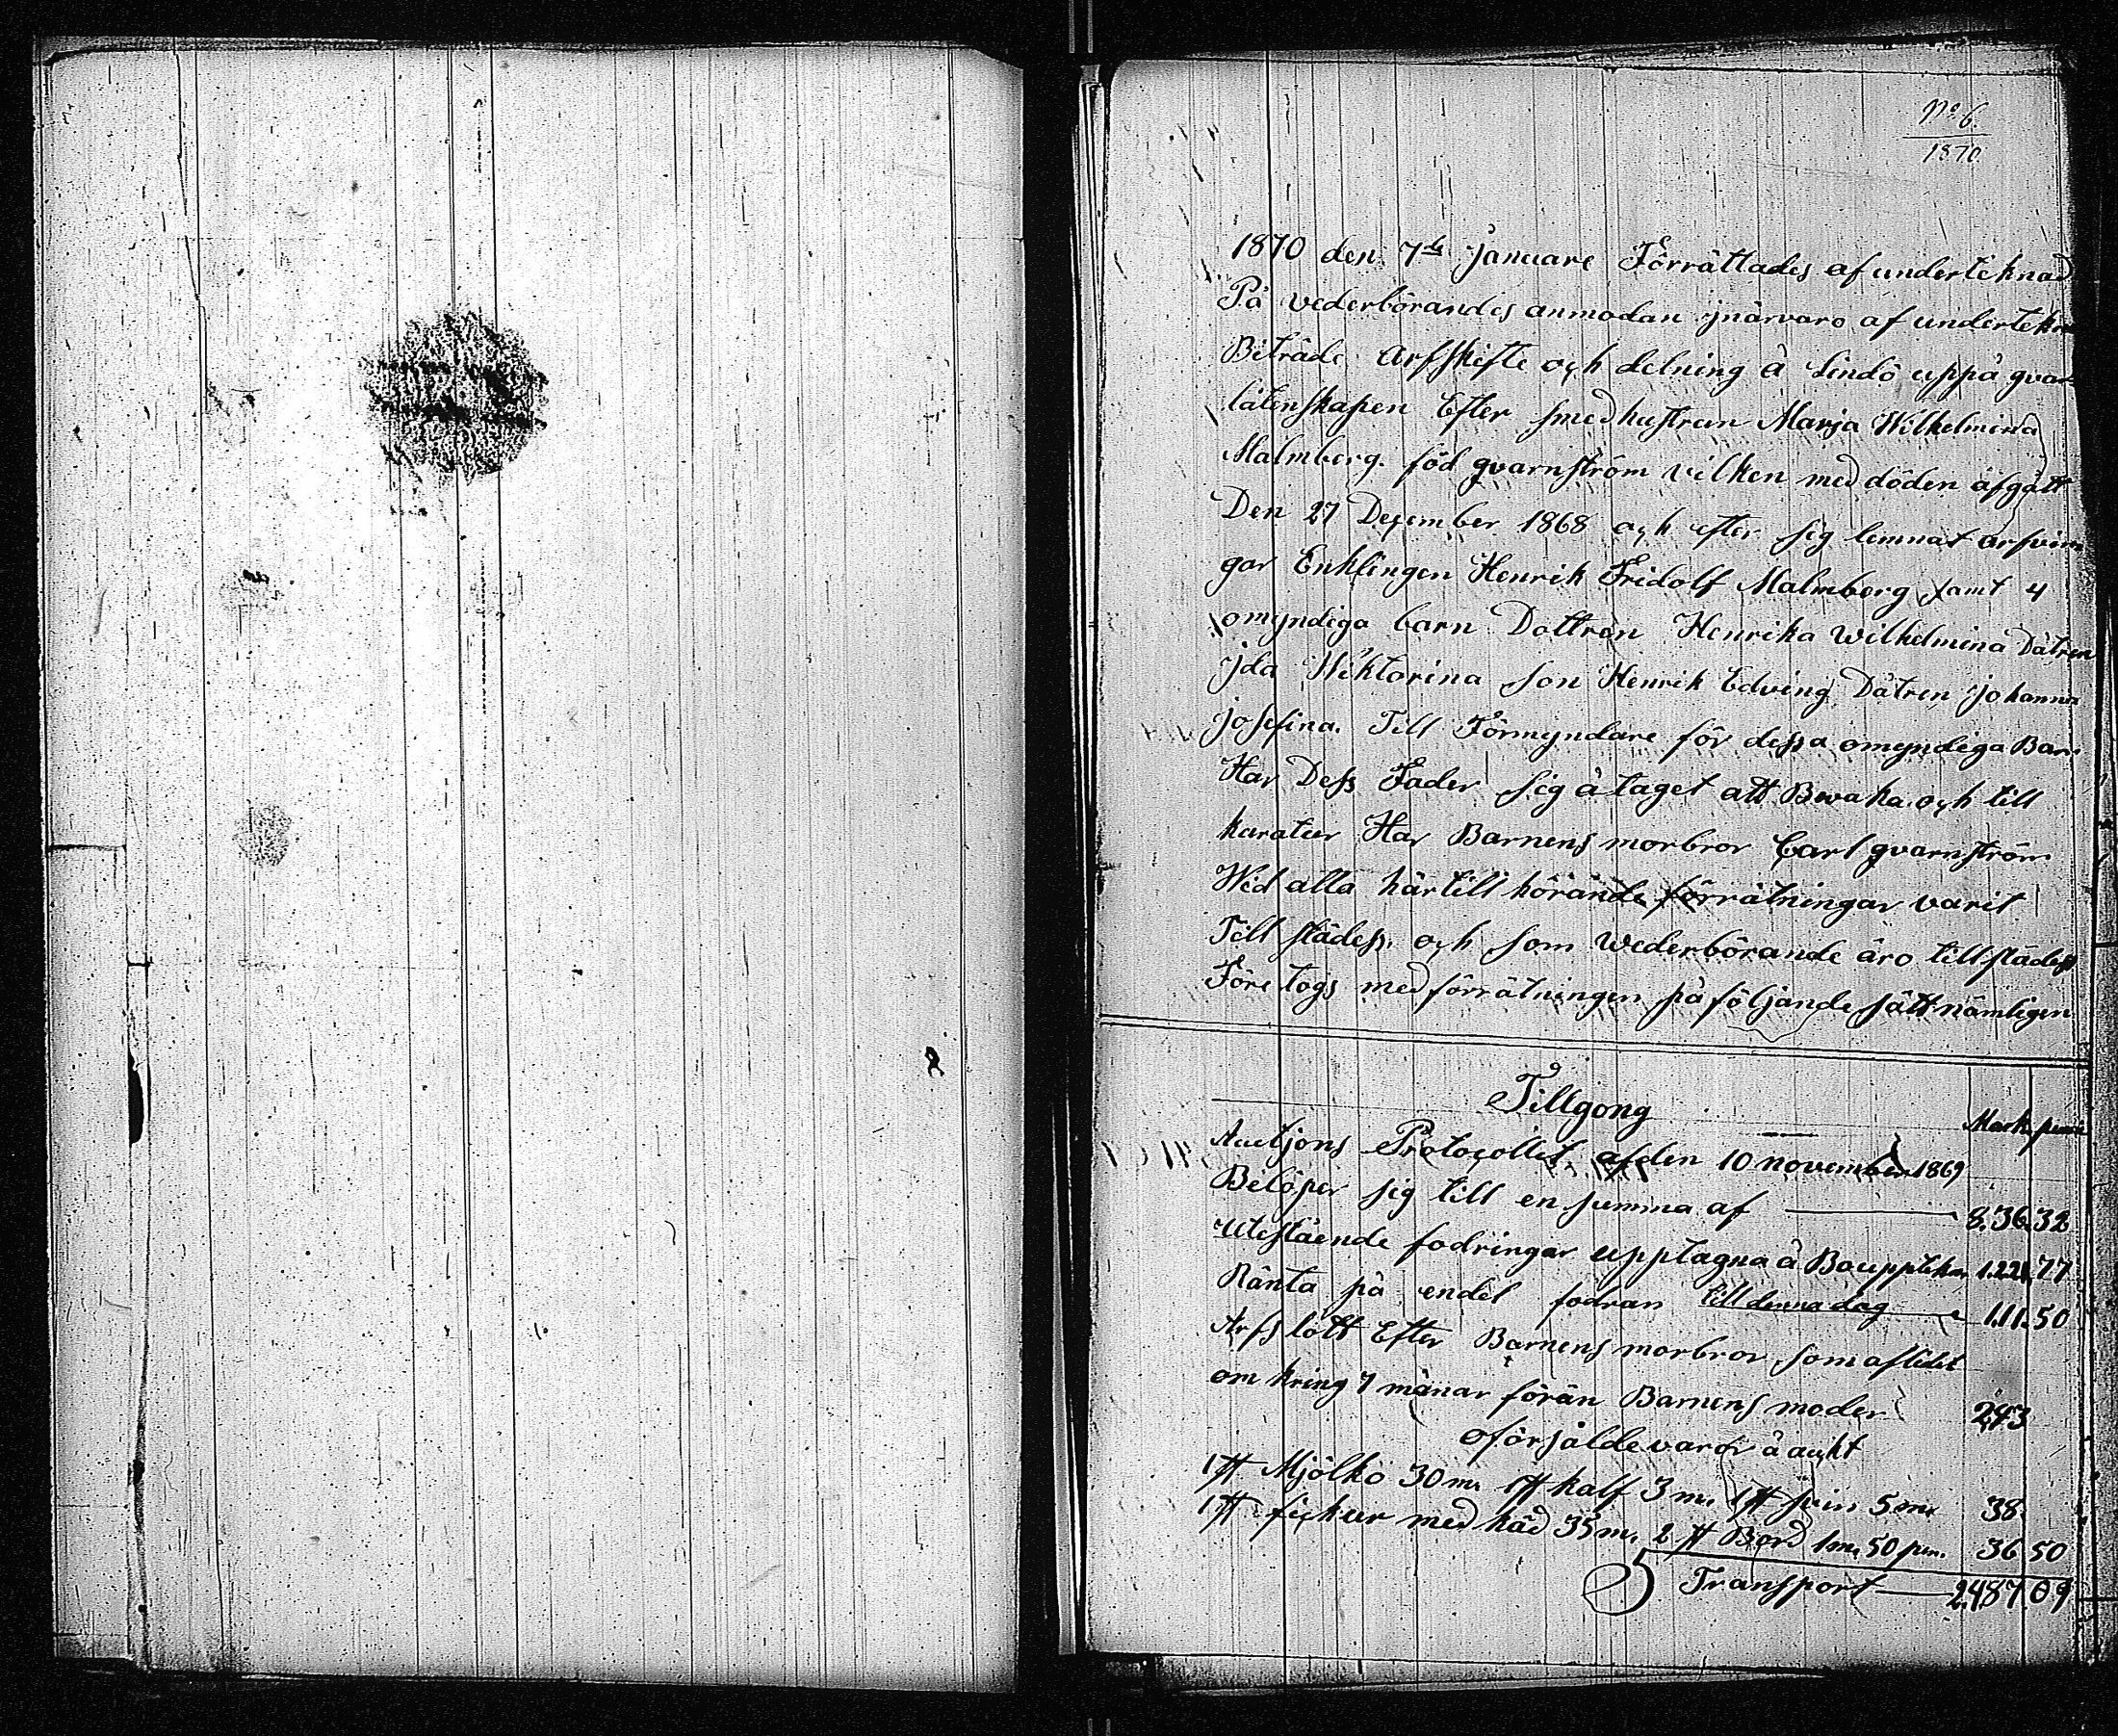 No 6
1870
1870 den 7de januare Förrättades af underteknad
På vederbörandes anmodan jnärvaro af undertekna
Biträde Arfskifte och delning å Lindö uppå qvar-
låtenskapen Efter smedhustrun Marja Wilhelmina
Malmberg. föd qvarnström vilken med döden afgått
Den 27 December 1868 och efter sig lemnat arfvin
gar Enklingen Henrik Fridolf Malmberg samt 4
omyndiga barn Dottren Henrika Wilhelmina Dåtren
jda Wiktorina son Henrik Edving Dåtren johanna
josefina. Till Förmyndare för dessa omyndiga Barn
Har Dess Fader sig åtaget att Bevaka och till
kuratur Har Barnens morbror Carl qvarnström
Wid alla härtill hörande förrätningar varit
Till städes. och som wederbörande äro tillstädes
Företogs med förrätningen på följande sätt nämligen
Tillgong
Mark penni
Auctjons Protocollet af den 10 november 1869
Belöper sig till en summa af 8.36 32
Utestående fodringar upptagna å Bouppteken 1.221.77
Ränta på endel fodran till denna dag 1.11.50
Arfs lott Efter Barnens morbror som aflidit
om kring 7 månar förän Barnens moder 243
oförsålde varor å auckt
1 st Mjölko 30 m. 1 st kalf 3 m. 1 st svin 5 m. 38
1 st fickur med käd 35 m. 2 st Bord 1 m. 50 pen. 36 50
Transport 2487.09